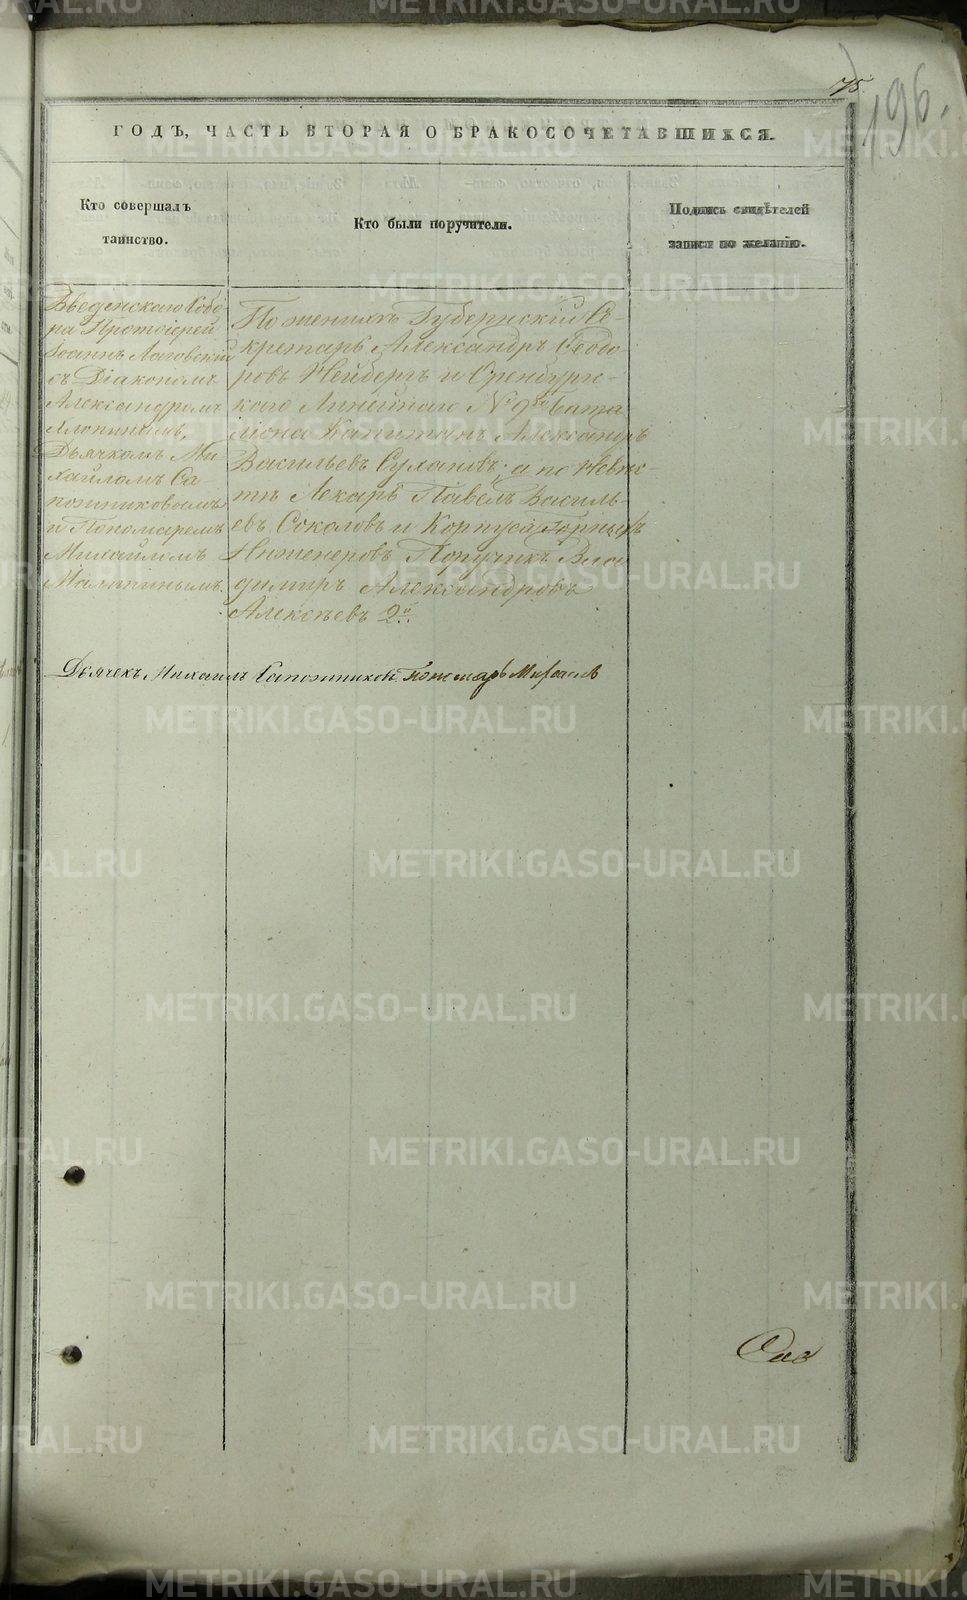 75.
196.
ГОДЪ, ЧАСТЬ ВТОРАЯ О БРАКОСОЧЕТАВШИХСЯ.
Кто совершалъ
таинство.
Кто были поручители.
Подпись свидѣтелей
записи по желанію.
Введенскаго Собо
ра Протоіерей
Іоаннъ Лаговскій
съ Діакономъ
Александромъ
Хлопинымъ,
Дьячкомъ Ми
хайломъ Са
пожниковымъ
и Пономаремъ
Михаиломъ
По женихѣ Губернскій Се-
кретарь Александръ Ѳеодо
ровъ Нейбергъ и Оренбургс-
каго Линейнаго № 9го Бата
ліона Капитанъ Александръ
Васильевъ Сухановъ; а по невѣс
тѣ Лекарь Павелъ Василь
евъ Соколовъ и Корпуса Горныхъ
Инженеровъ Поручикъ Вла
димиръ Александровъ
Алексѣевъ 2й.
Дьячекъ Михаилъ Сапожниковъ Пономарь Михаилъ
METRIKI.GASO-URAL.RU